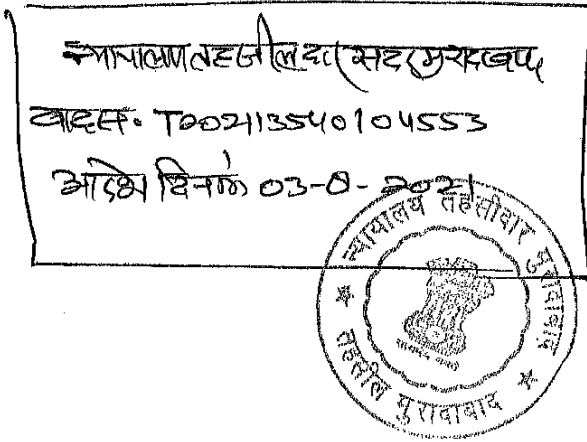 न्यायालय तहसीलदार सदर मुरादाबाद
वाद सं. T202113540104553
आदेश दिनांक 03-8-2021
न्यायालय तहसीलदार मुरादाबाद
सत्यमेव जयते
तहसील मुरादाबाद